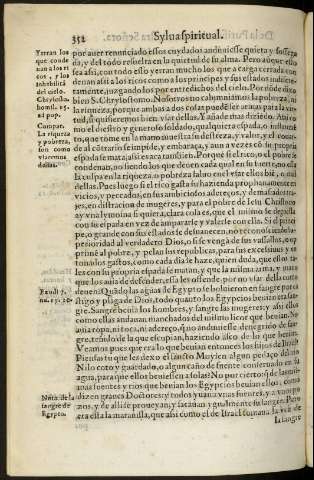 352 Sylua spiritual.
Yerran los
que conde
nan a los ri
cos, y los
inhabilitã
del cielo.
Chrysosto.
homil. 15.
ad pop.
Compar.
La riqueza
y pobreza,
son como
vna
Exod. 7.
nu. 17. 20.
Nota de la
sangre de
Egypto.
por auer renunciado essos cuydados andauiesse quieta y sossega
da, y del todo resuelta en la quietud de su alma. Pero aunque esto
sea assi, con todo esso yerran muchos que a carga cerrada con
denan assi a los ricos como a los principes y sus estados indiste
tamente, juzgando los por entredichos del cielo. Por donde dixo
bien S. Chrysostomo. Nosotros no calumniamos la pobreza, ni
la riqueza, porque ambas a dos cosas pueden ser armas para la vir
tud, si quisieremos bien vsar dellas. Y añade mas diziendo. Assi co
mo el
to, que tome en la mano muestra su destreza, y valor, y el
de al cõtrario se impide, y embaraça, aun a vezes cõ su propria
espada se mata; assi es aca tambien. Porque si el rico, o el pobre se
condenan, no siendo los que deuen cada qual en su suerte, no esta
la culpa en la riqueza, o pobreza, sino en el vsar ellos biẽ, o mal
dellas. Pues luego si el rico gasta su hazienda prophanamente en
vicios, y peccados, en sus ambiciosos aderezos, y demasiados tra
jes, en disfracion de mugeres, y para el pobre de Iesu Christo no
ay vna
con su espada en vez de ampararse y valerse con ella. Si el princi
pe, o grande con sus estados se desuanecen, no reconociẽdo la su
perioridad al verdadero Dios, o si se venga de sus vassallos, o op
prime al pobre, y pelea sus republicas, para sus excessiuos y es
tos gastos, como cada dia se haze, quien duda, que essos ta
les con su propria espada se matan, y que la misma arma, y mano
que los auia de defender, essa les offende, por no vsar della como
deuen? Quãdo las aguas de Egypto se boluieron en sangre por ca
stigo y plaga de Dios, todo quanto los Egypcios beuian era san
gre. Sangre beuia los hombres, y sangre las mugeres, y assi ellos
como ellas andauan manchados del mismo licor que beuian. No
auia ropa, ni toca, ni aderezo, q̃ no anduuiesse denegrido de san
gre, teniendo la que escupian, haziendo asco de lo que beuian.
Veamos pues que era lo que beuian entonces los hijos de Israel?
Piensas tu que les dexo el sancto Moysen algun pedaço del rio
Nilo coto y guardado, o algun caño de fuente conseruado en su
agua, para que ellos beuiessen a solas? No por cierto, q̃ de las mis
mas fuentes y rios que beuian los Egypcios beuian ellos, como
dizen grauess Doctores; y todos y vnas a vnas fuentes, y a vnos po
zos, y de alli se proueyan, y sacauan ygualmente su sangre. Pero
era esta la marauilla, que assi como el de Israel tomaua la
la sangre